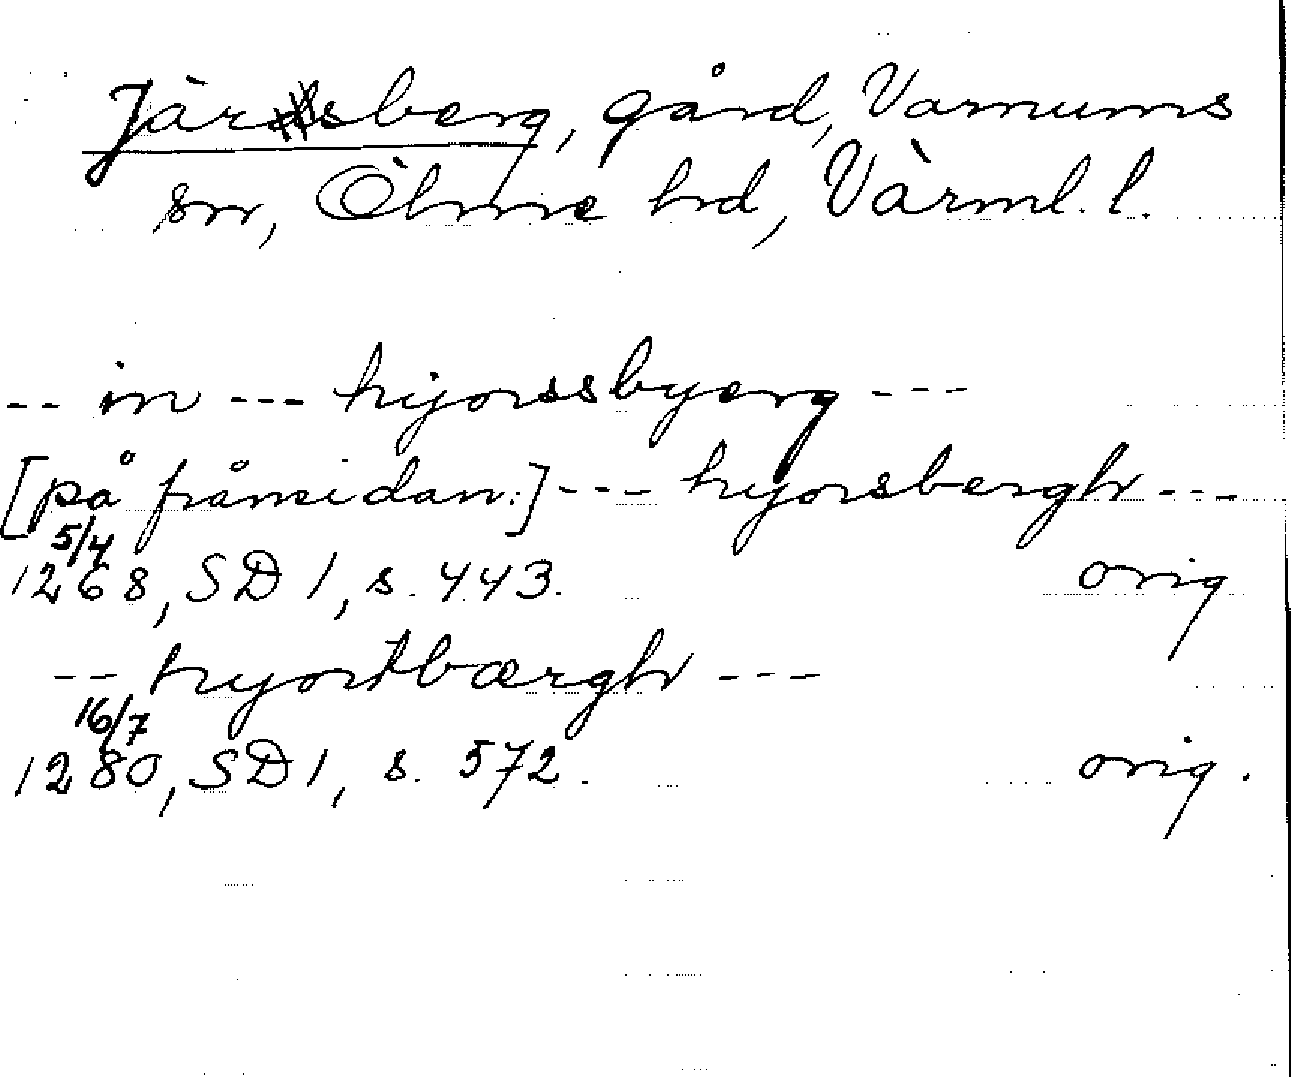 Järsberg, gård, Varnums
sn, Ölme hd, Värml. l.
-- in --- hijorssbyerg ---
[på främsidan:] --- hyorsbergh ---
5/4
1268, SD 1, s. 443. orig
-- hyortbærgh ---
16/7
1280, SD 1, s. 572. orig.